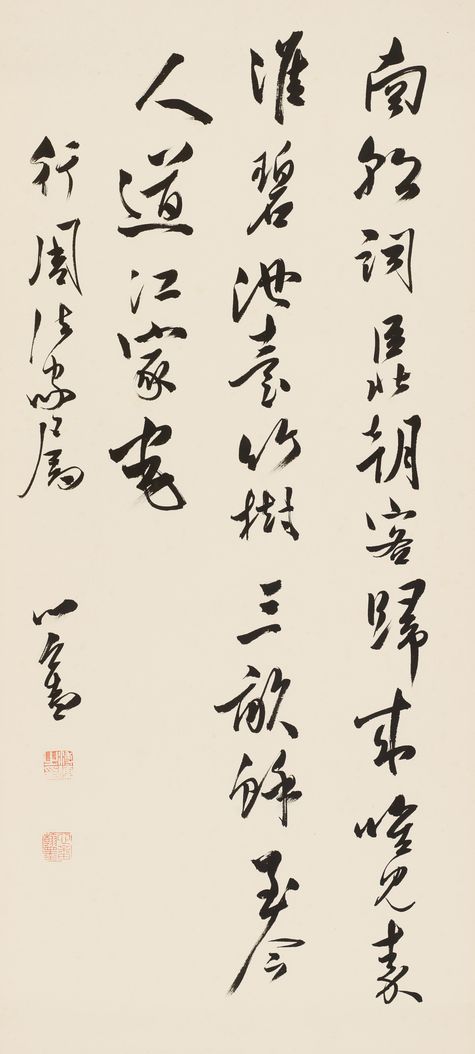 南朝詞臣北朝客歸來唯見秦
淮碧池臺竹樹三畝餘至今
人道江家宅
行周法家屬 心畬